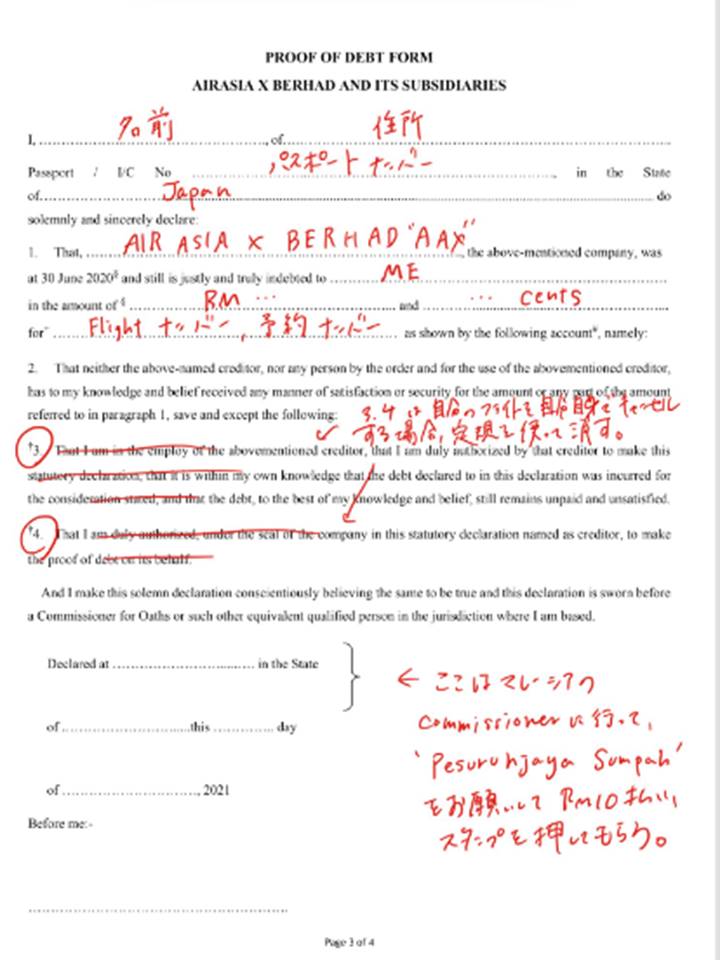 PROOF OF DEBT FORM
AIRASIA X BERHAD AND ITS SUBSIDIARIES
I, 名前, of 住所
Passport / I/C No パスポートナンバー, in the State
of Japan do
solemnly and sincerely declare:
1. That, AIR ASIA X BERHAD "AAX", the above-mentioned company, was
at 30 June 2020§ and still is justly and truly indebted to ME
in the amount of § RM ... and ... cents
for~ Flight ナンバー, 予約ナンバー as shown by the following account#, namely:
2. That neither the above-named creditor, nor any person by the order and for the use of the abovementioned creditor,
has to my knowledge and belief received any manner of satisfaction or security for the amount or any part of the amount
referred to in paragraph 1, save and except the following:
3.4は自分のフライトを自分自身でキャンセル
する場合, 定規を使って消す。
†3. That I am in the employ of the abovementioned creditor, that I am duly authorized by that creditor to make this
statutory declaration, that it is within my own knowledge that the debt declared to in this declaration was incurred for
the consideration stated, and that the debt, to the best of my knowledge and belief, still remains unpaid and unsatisfied.
†4. That I am duly authorized, under the seal of the company in this statutory declaration named as creditor, to make
the proof of debt on its behalf.
And I make this solemn declaration conscientiously believing the same to be true and this declaration is sworn before
a Commissioner for Oaths or such other equivalent qualified person in the jurisdiction where I am based.
Declared at .............................. in the State
of ..............................this .............. day
of .............................., 2021
← ここはマレーシアの
commissionerに行って,
'Pesuruhjaya Sumpah'
をお願いしてRM10払い,
スタンプを押してもらう。
Before me:-
Page 3 of 4